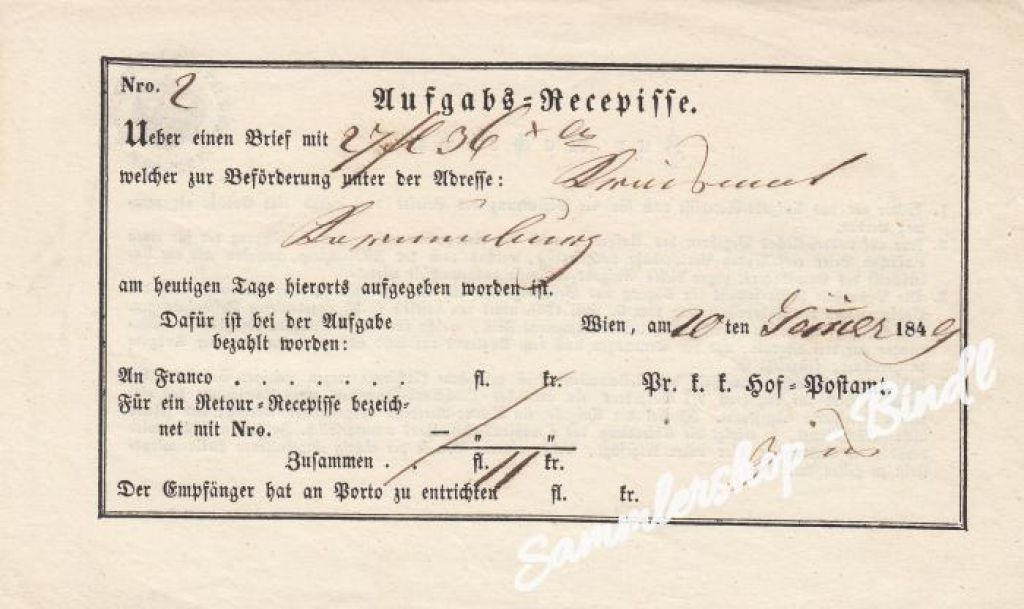 Nro. 2
Aufgabs-Recepisse.
Ueber einen Brief mit 27 fl 36 x
welcher zur Beförderung unter der Adresse:
am heutigen Tage hierorts aufgegeben worden ist.
Dafür ist bei der Aufgabe
bezahlt worden:
Wien, am 20 ten Jänner 1849
An Franco . . . . . . . fl. kr.
Pr. k. k. Hof-Postamt.
Für ein Retour-Recepisse bezeich-
net mit Nro. — „ „
Zusammen . . fl. 11 kr.
Der Empfänger hat an Porto zu entrichten fl. kr.
Sammlershop - Bindl